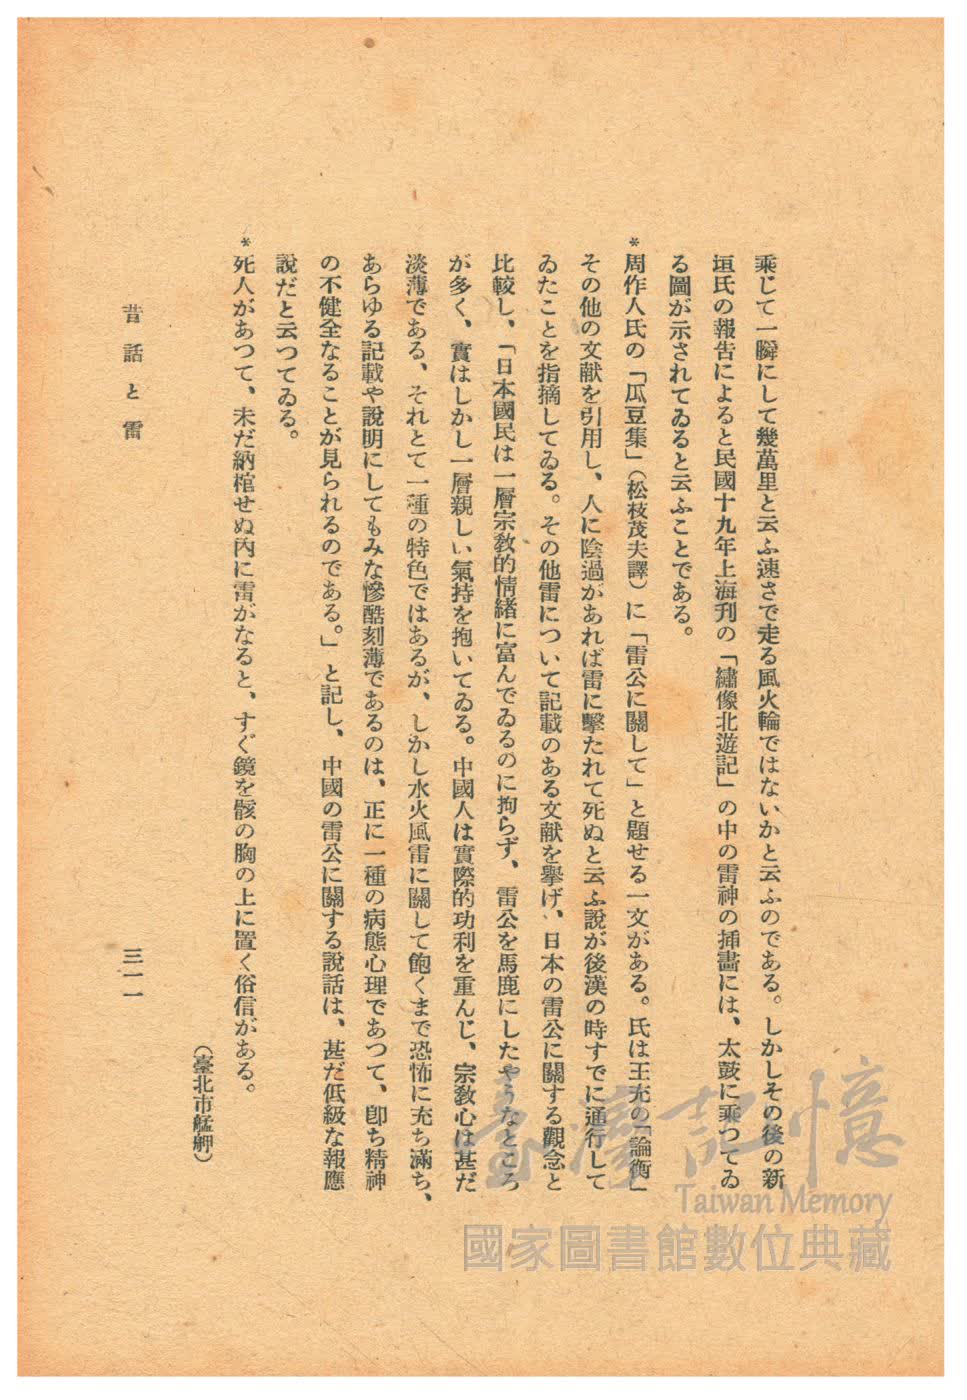 乘じて一瞬にして幾萬里と云ふ速さで走る風火輪ではないかと云ふのである。しかしその後の新
垣氏の報告によると民國十九年上海刊の「繡像北遊記」の中の雷神の揷畫には、太鼓に乘つてゐ
る圖が示されてゐると云ふことである。
*周作人氏の「瓜豆集」（松枝茂夫譯）に「雷公に關して」と題せる一文がある。氏は王充の「論衡」
その他の文献を引用し、人に陰過があれば雷に擊たれて死ぬと云ふ說が後漢の時すでに通行して
ゐたことを指摘してゐる。その他雷について記載のある文献を擧げ、日本の雷公に關する觀念と
比較し、「日本國民は一層宗敎的情緒に富んでゐるのに拘らず、雷公を馬鹿にしたやうなところ
が多く、實はしかし一層親しい氣持を抱いてゐる。中國人は實際的功利を重んじ、宗敎心は甚だ
淡薄である、それとて一種の特色ではあるが、しかし水火風雷に關して飽くまで恐怖に充ち滿ち、
あらゆる記載や說明にしてもみな慘酷刻薄であるのは、正に一種の病態心理であつて、卽ち精神
の不健全なることが見られるのである。」と記し、中國の雷公に關する說話は、甚だ低級な報應
說だと云つてゐる。
*死人があつて、未だ納棺せぬ內に雷がなると、すぐ鏡を骸の胸の上に置く俗信がある。
（臺北市艋舺）
昔話と雷
三一一
臺灣記憶
Taiwan Memory
國家圖書館數位典藏